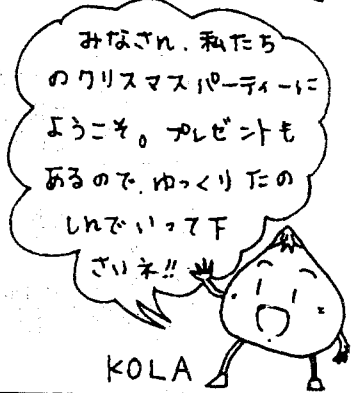 みなさん、私たち
のクリスマスパーティーに
ようこそ。プレゼントも
あるので、ゆっくりたの
しんでいって下
さいネ!!
KOLA